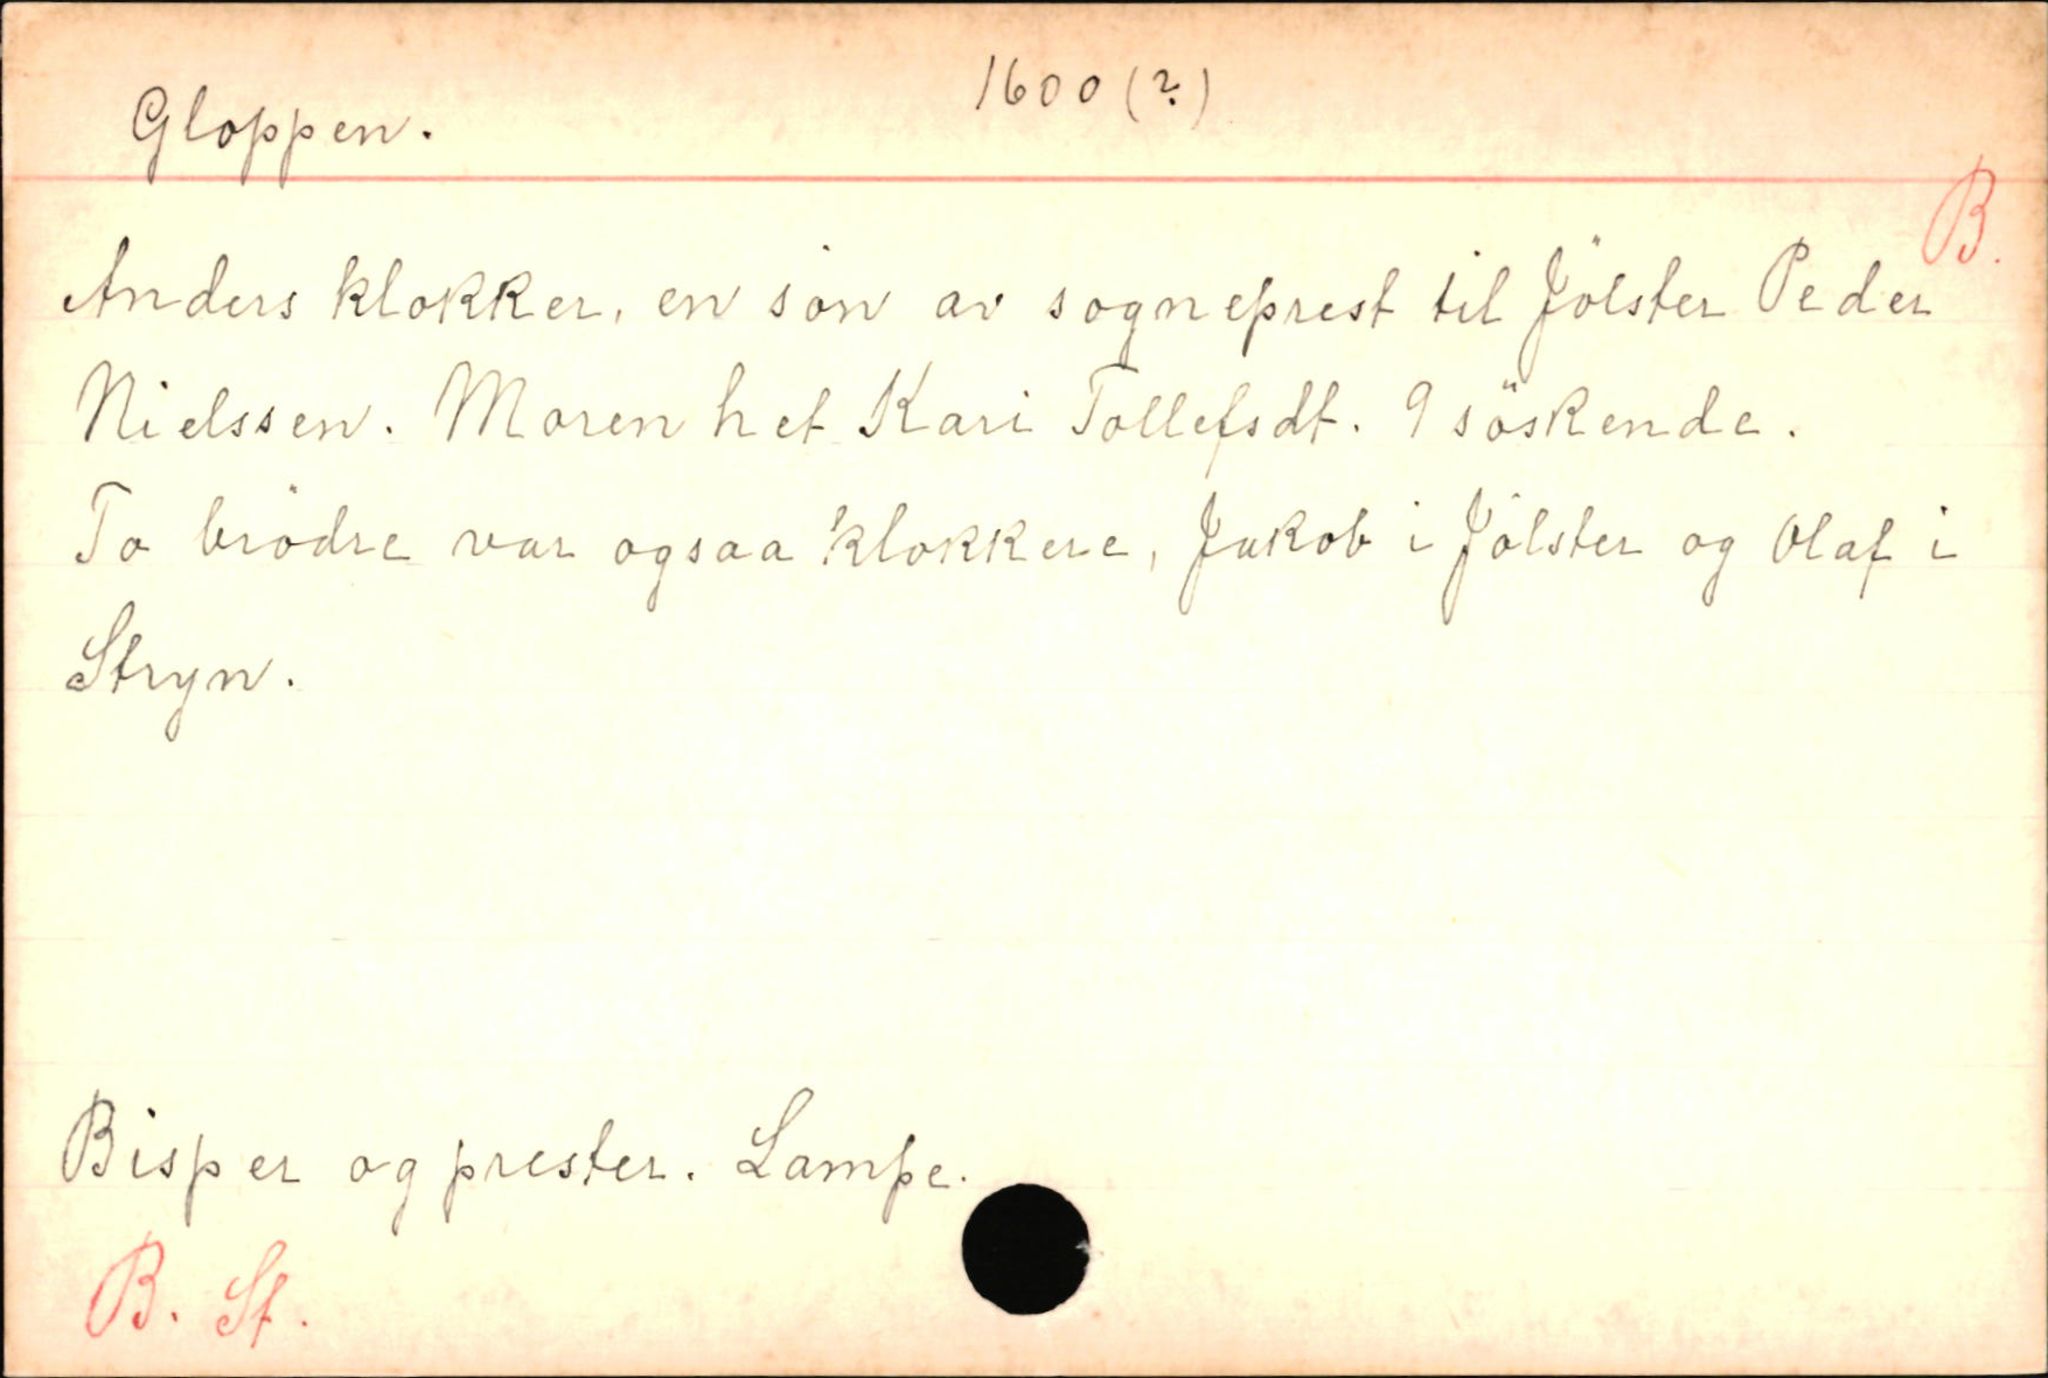 Gloppen. 1600 (?)
B.
Anders klokker, en sön av sogneprest til Jölster Peder
Nielssen. Moren het Kari Tollefsdt. 9 söskende.
To brödre var ogsaa klokkere, Jakob i Jölster og Olaf i
Stryn.
Bisper og prester. Lampe.
B. St.